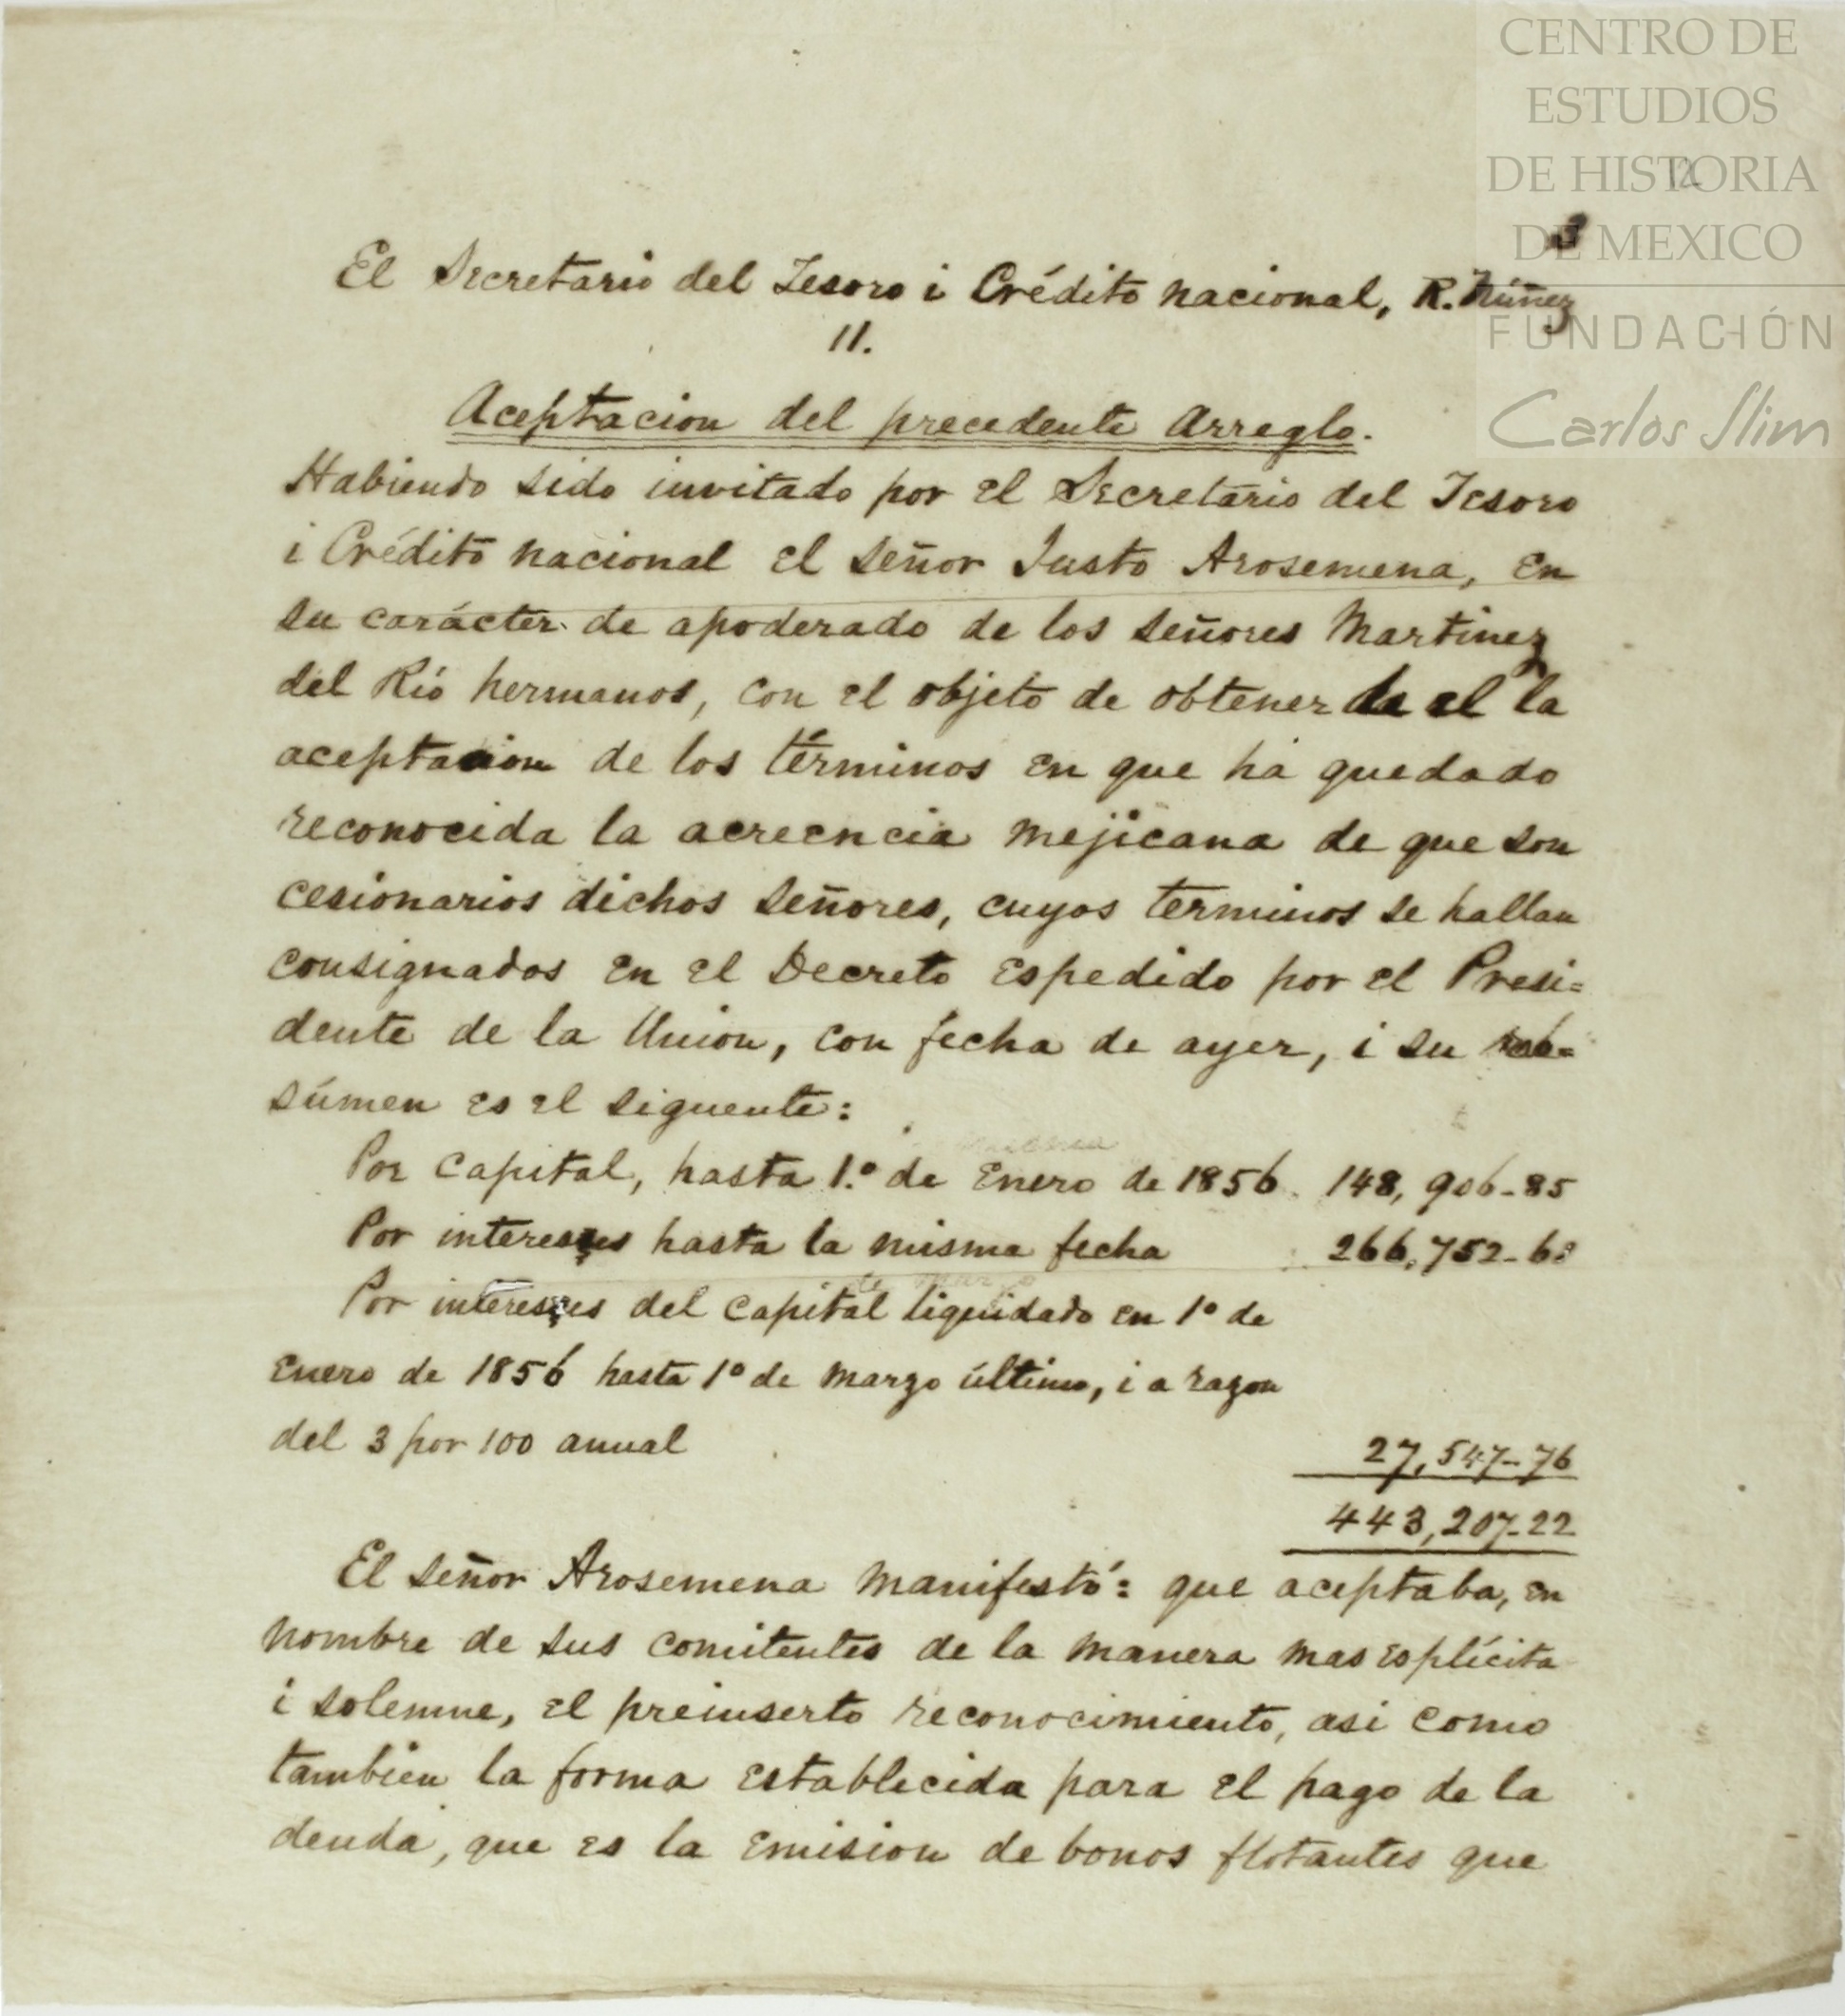 CENTRO DE
ESTUDIOS
DE HISTORIA
DE MEXICO
FUNDACIÓN
Carlos Slim
12
El Secretario del Tesoro i Crédito nacional, R. Núñez
11.
Aceptacion del precedente Arreglo.
Habiendo sido invitado por el Secretario del Tesoro
i Crédito nacional el señor Justo Arosemena, en
su carácter de apoderado de los señores Martinez
del Rió hermanos, con el objeto de obtener de el la
aceptacion de los términos en que ha quedado
reconocida la acreencia mejicana de que son
cesionarios dichos señores, cuyos terminos se hallan
consignados en el Decreto espedido por el Presi=
dente de la Union, con fecha de ayer, i su
súmen es el siguente:
Por Capital, hasta 1.º de Enero de 1856. 148,906-85
Por intereses hasta la misma fecha 266,752-6
Por intereses del Capital liquidado en 1º de
Enero de 1856 hasta 1º de Marzo último, i a razon
del 3 por 100 anual
27,547-76
443,207-22
El señor Arosemena manifestó: que aceptaba, en
nombre de sus comitentes de la manera mas esplícita
i solemne, el preinserto reconocimiento, asi como
tambien la forma establecida para el pago de la
deuda, que es la emision de bonos flotantes que